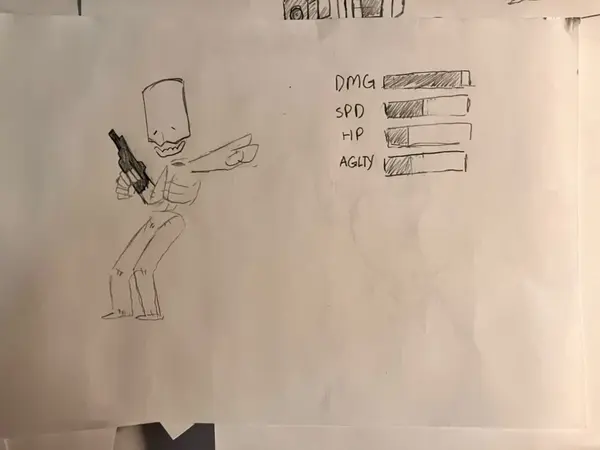 DMG
SPD
HP
AGLTY